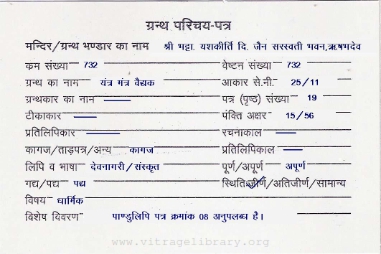 ग्रन्थ परिचय-पत्र
मन्दिर/ग्रन्थ भण्डार का नाम श्री भट्टा. यशकीर्ति दि. जैन सरस्वती भवन, ऋषभदेव
क्रम संख्या 732 वेष्टन संख्या 732
ग्रन्थ का नाम यंत्र मंत्र वैद्यक आकार से.मी. 25/11
ग्रन्थकार का नाम — पत्र (पृष्ठ) संख्या 19
टीकाकार — पंक्ति अक्षर 15/56
प्रतिलिपिकार — रचनाकाल —
कागज/ताड़पत्र/अन्य कागज प्रतिलिपिकाल —
लिपि व भाषा देवनागरी/संस्कृत पूर्ण/अपूर्ण अपूर्ण
गद्य/पद्य पद्य स्थिति जीर्ण/अतिजीर्ण/सामान्य
विषय धार्मिक
विशेष विवरण पाण्डुलिपि पत्र क्रमांक 08 अनुपलब्ध है।
www.vitragelibrary.org